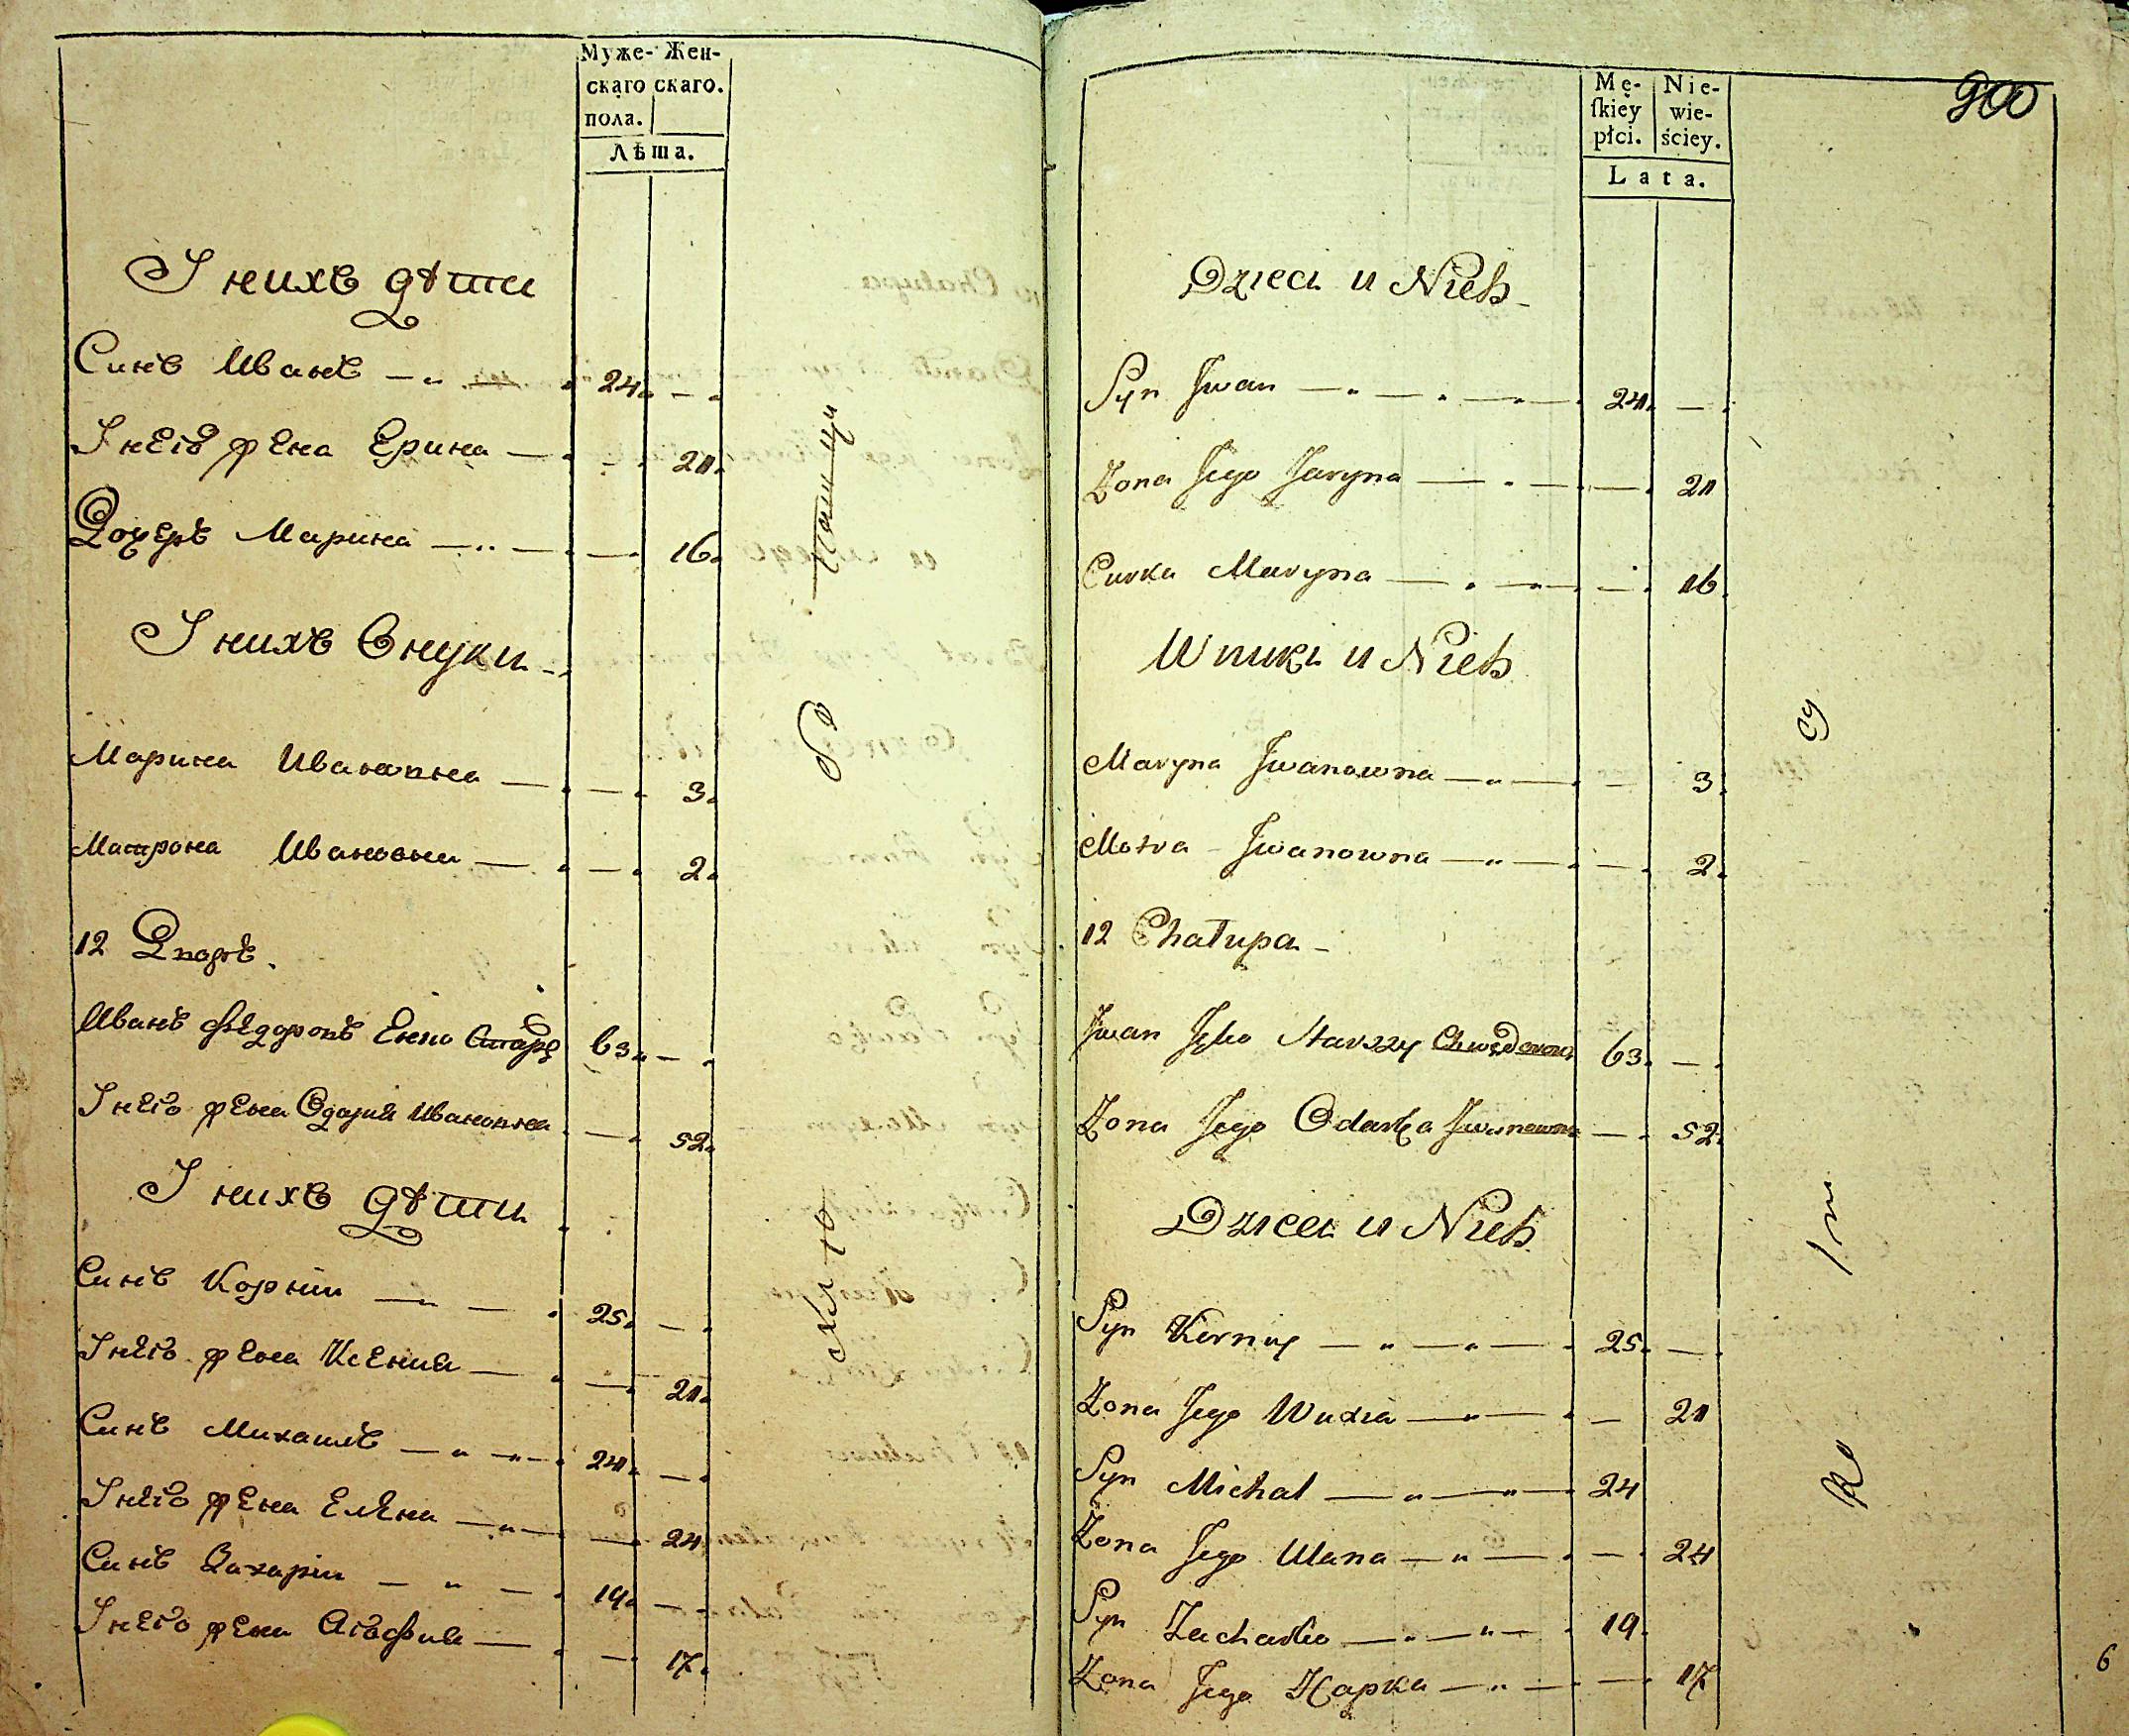 Муже- Жен-
скаго скаго.
пола.
Лѣта.
У нихъ дѣти
Синъ Иванъ 24
У него жена Ерина 21
Дочерь Марина 16
У нихъ внуки
Марина Ивановна 3
Матрона Ивановна 2
12 Дворъ
Иванъ Федоровъ 63
У него жена Одария Ивановна 52
У нихъ дѣти
Синъ Корнiи 25
У него жена Ксения 21
Синъ Михаилъ 24
У него жена Елена 24
Синъ Захарiи 19
У него жена Агафия 17
Mę- Nie-
skiey wie-
płci. ściey.
Lata.
900
Dzieci u Nich
Syn Jwan 24
Żona Jego Jaryna 21
Curka Maryna 16
Wnuki u Nich
Maryna Jwanowna 3
Motra Jwanowna 2
12 Chałupa
Jwan Starszy 63
Żona Jego Odarka Jwanowna 52
Dzieci u Nich
Syn Korniy 25
Żona Jego 21
Syn Michał 24
Żona Jego Ulana 24
Syn Zacharko 19
Żona Jego Хapka 17
6